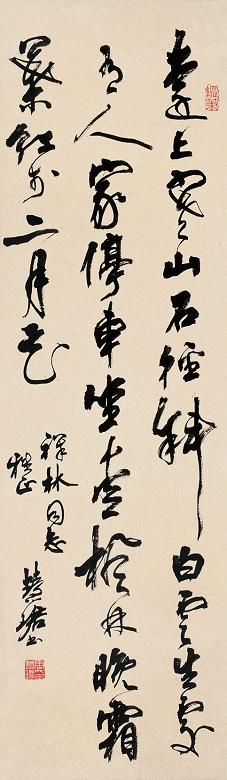 遠上寒山石徑斜白雲生處
有人家停車坐愛楓林晚霜
葉紅於二月花
祥林同志
正
慧珺書